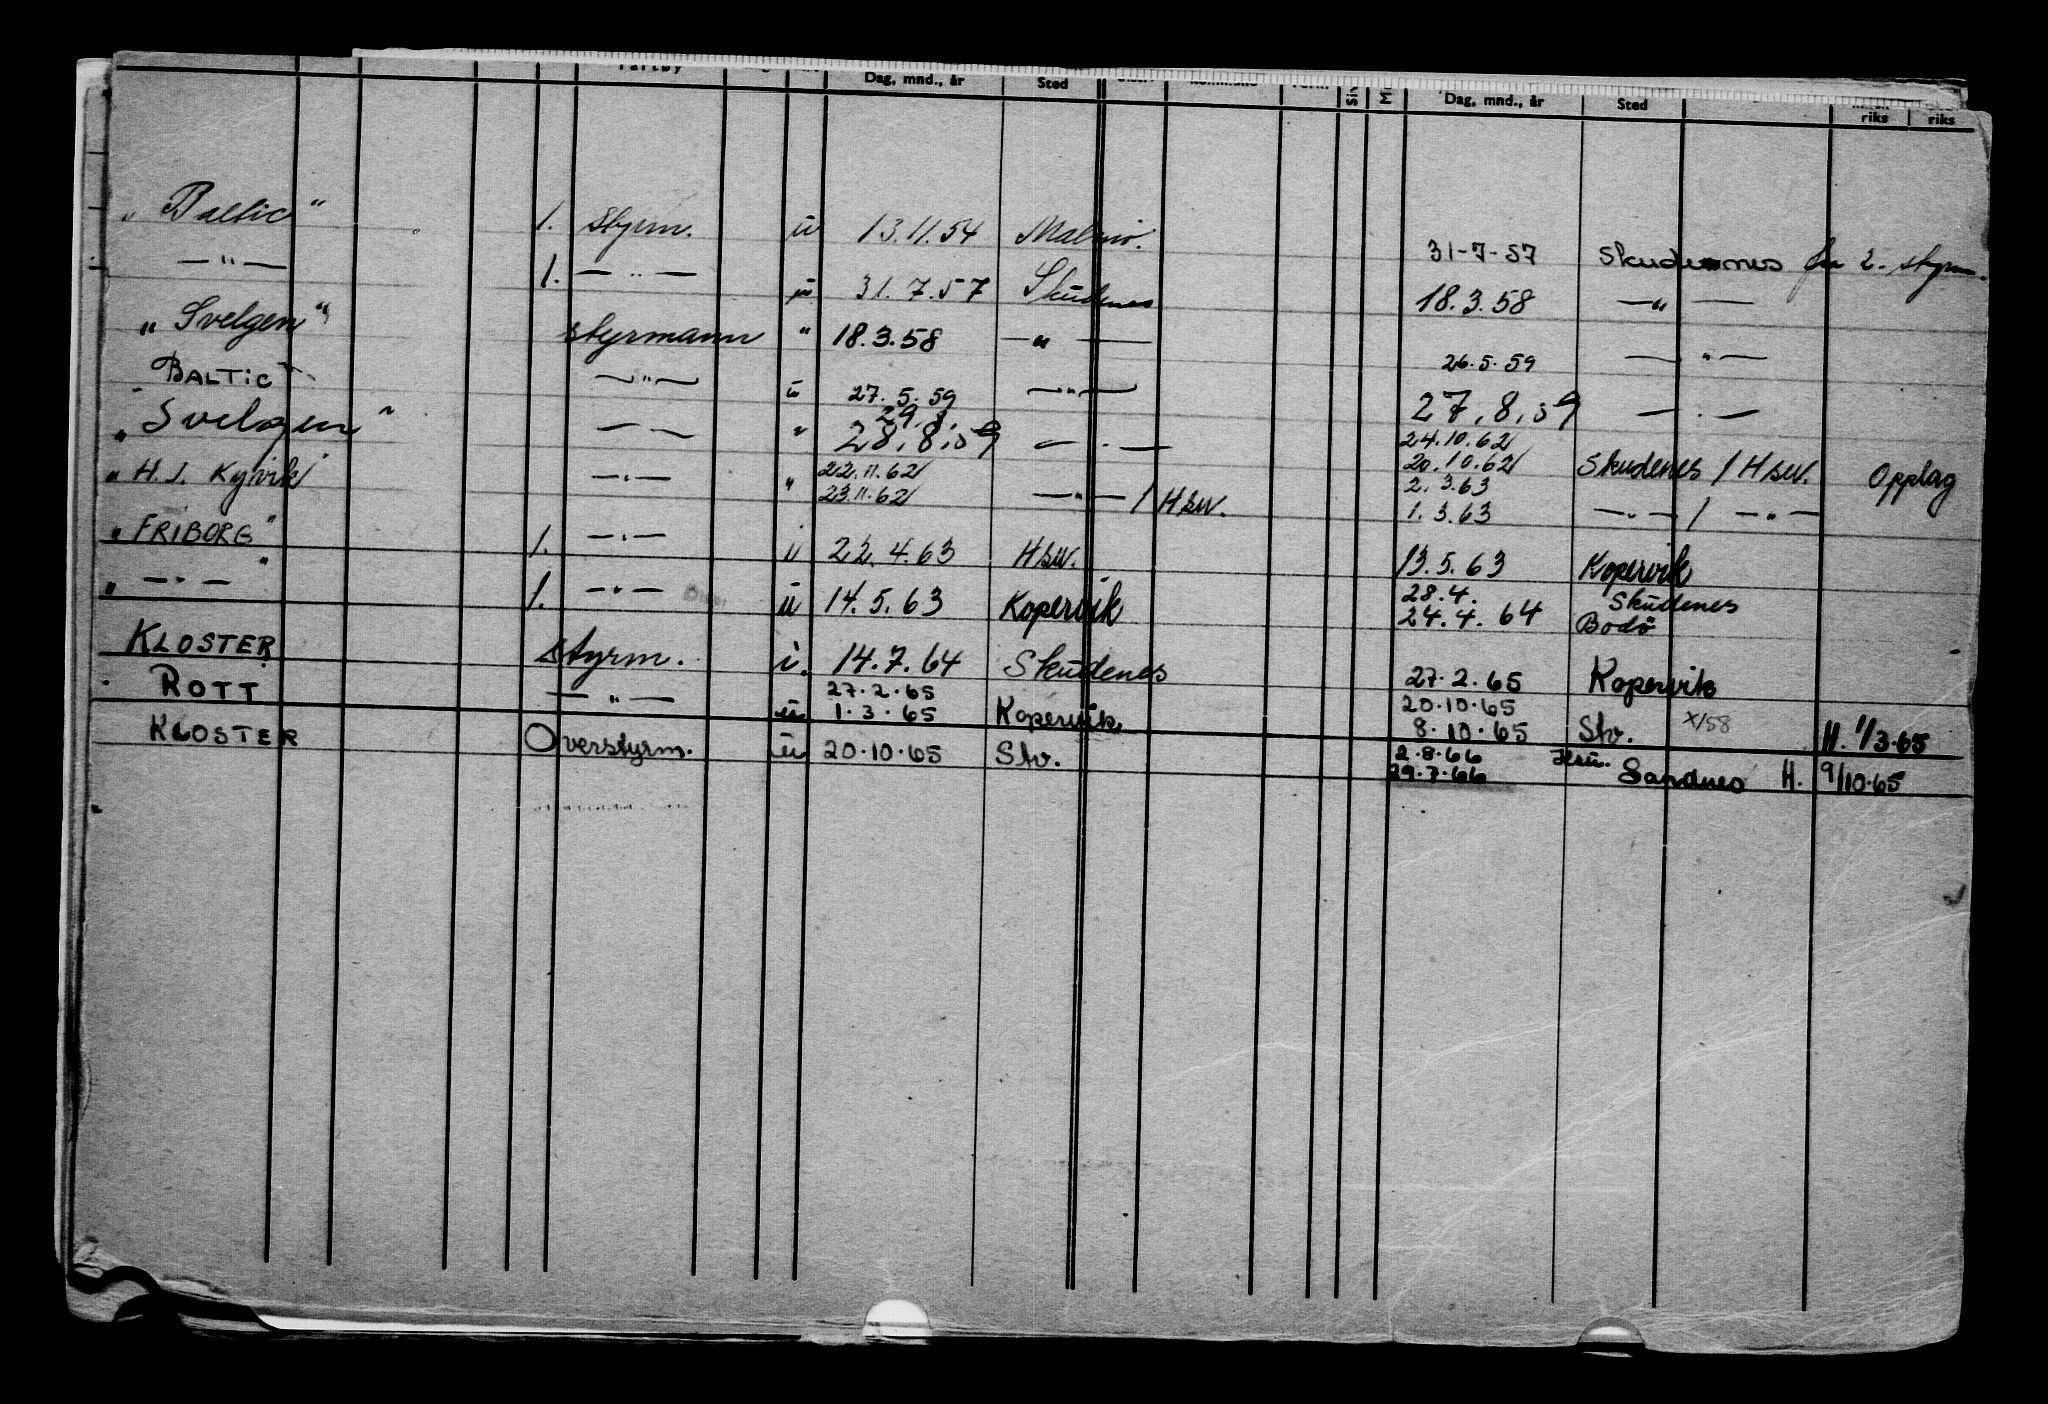 Dag, mnd., år Sted Dag, mnd., år Sted riks riks
„ Baltic “ 1. styrm. u 13.11.54 Malmö. 31-7-57 Skudesnes fra 2. styrm.
— " — 1. — " — u 31.7.57 Skudenes 18.3.58 — " —
„ Svelgen “ styrmann " 18.3.58 — " — 26.5.59 — " —
BALTIC — " — u 27.5.59 — " — 27.8.59 — " —
29.8.
„ Svelgen “ — " — " 28.8.59 — " — 24.10.62
20.10.62 Skudenes / Hsw. Opplag
„ H. J. Kyvik “ — " — " 22.11.62
23.11.62 — " — / Hsw. 2.3.63
1.3.63 — " — / — " —
„ FRIBORG “ 1. — " — u 22.4.63 Hsw. 13.5.63 Kopervik
„ — " — “ 1. — " — u 14.5.63 Kopervik 28.4. Skudenes
24.4.64 Bodö
KLOSTER styrm. i. 14.7.64 Skudenes 27.2.65 Kopervik
ROTT — " — u 27.2.65
1.3.65 Kopervik 20.10.65
8.10.65 Stv. X/58 H. 1/3.65
KLOSTER Overstyrm. u 20.10.65 Stv. 2.8.66
29.7.66 Sandnes H. 9/10.65